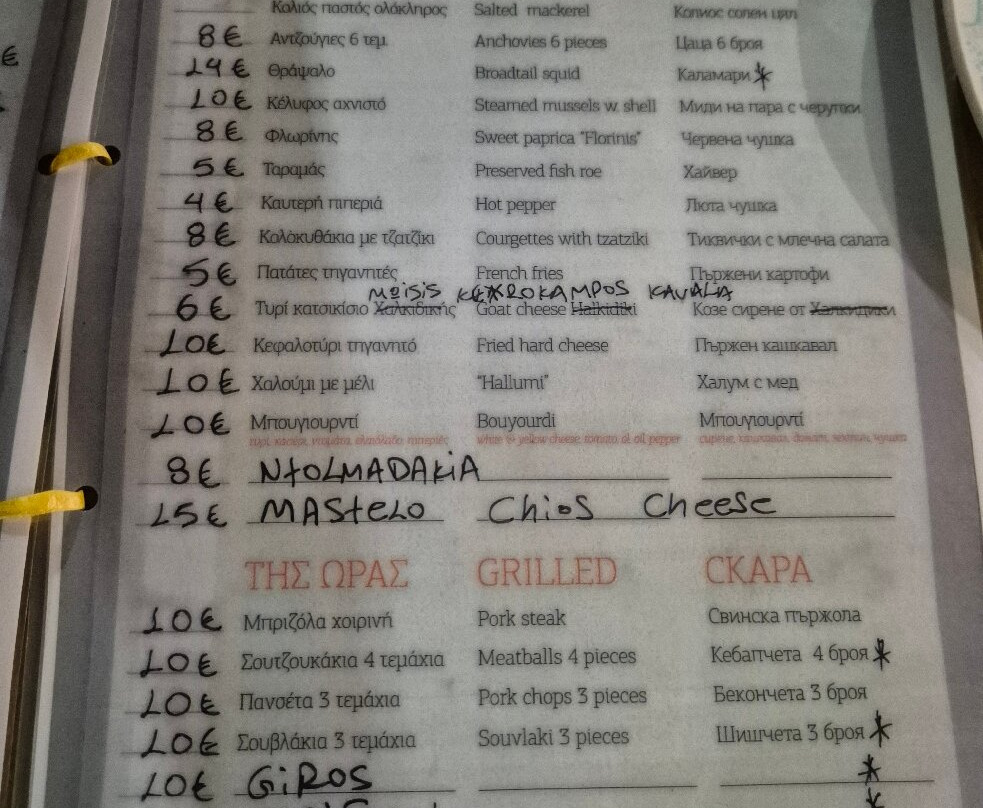 Κολιός παστός ολόκληρος Salted mackerel Колиос солен цял
8€ Αντζούγιες 6 τεμ. Anchovies 6 pieces Цаца 6 броя
14€ Θράψαλο Broadtail squid Каламари *
10€ Κέλυφος αχνιστό Steamed mussels w. shell Миди на пара с черупки
8€ Φλωρίνης Sweet paprica "Florinis" Червена чушка
5€ Ταραμάς Preserved fish roe Хайвер
4€ Καυτερή πιπεριά Hot pepper Люта чушка
8€ Κολοκυθάκια με τζατζίκι Courgettes with tzatziki Тиквички с млечна салата
5€ Πατάτες τηγανητές French fries Пържени картофи
KAVALA
6€ Τυρί κατσικίσιο Χαλκιδικής Goat cheese Halkidiki Козе сирене от Халкидики
10€ Κεφαλοτύρι τηγανητό Fried hard cheese Пържен кашкавал
10€ Χαλούμι με μέλι "Hallumi" Халум с мед
10€ Μπουγιουρντί Bouyourdi Μπουγιουρντί
white & yellow cheese, tomato & oil pepper
8€ NtOLMADAKiA
15€ MAStELO Chios Cheese
ΤΗΣ ΩΡΑΣ GRILLED СКАРА
10€ Μπριζόλα χοιρινή Pork steak Свинска пържола
10€ Σουτζουκάκια 4 τεμάχια Meatballs 4 pieces Кебапчета 4 броя *
10€ Πανσέτα 3 τεμάχια Pork chops 3 pieces Бекончета 3 броя
10€ Σουβλάκια 3 τεμάχια Souvlaki 3 pieces Шишчета 3 броя *
10€ GiROS *